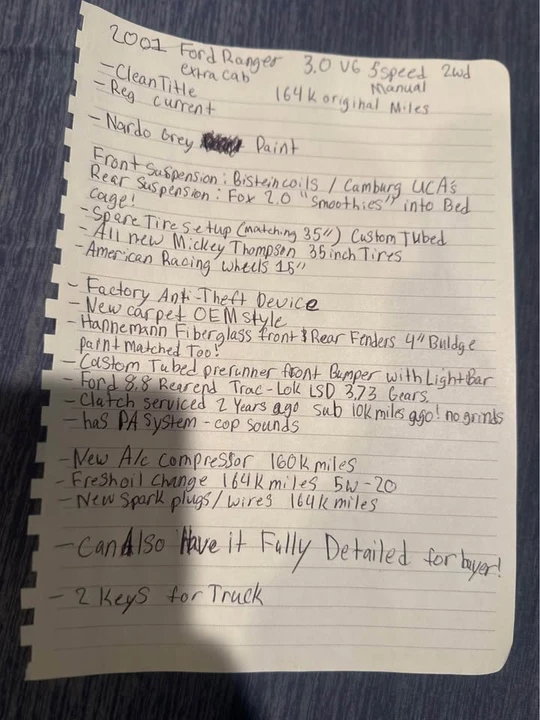 2001 Ford Ranger 3.0 V6 5speed 2wd
extra cab Manual
- Clean Title 164k original Miles
- Reg current
- Nardo Grey Paint
Front Suspension: Bistein coils / Camburg UCA's
Rear Suspension: Fox 2.0 "Smoothies" into Bed
cage!
- Spare Tire setup (matching 35") Custom Tubed
- All new Mickey Thompson 35 inch Tires
- American Racing wheels 15"
- Factory Anti-Theft Device
- New carpet OEM style
- Hannemann Fiberglass front & Rear Fenders 4" Buldge
paint matched Too!
- Custom Tubed prerunner front Bumper with LightBar
- Ford 8.8 Rearend Trac-Lok LSD 3.73 Gears
- Clutch serviced 2 Years ago sub 10k miles ago! no grinds
- has PA System - cop sounds
- New A/c compressor 160k miles
- Fresh oil change 164k miles 5w-20
- New Spark plugs/wires 164k miles
- Can Also Have it Fully Detailed for buyer!
- 2 Keys for Truck